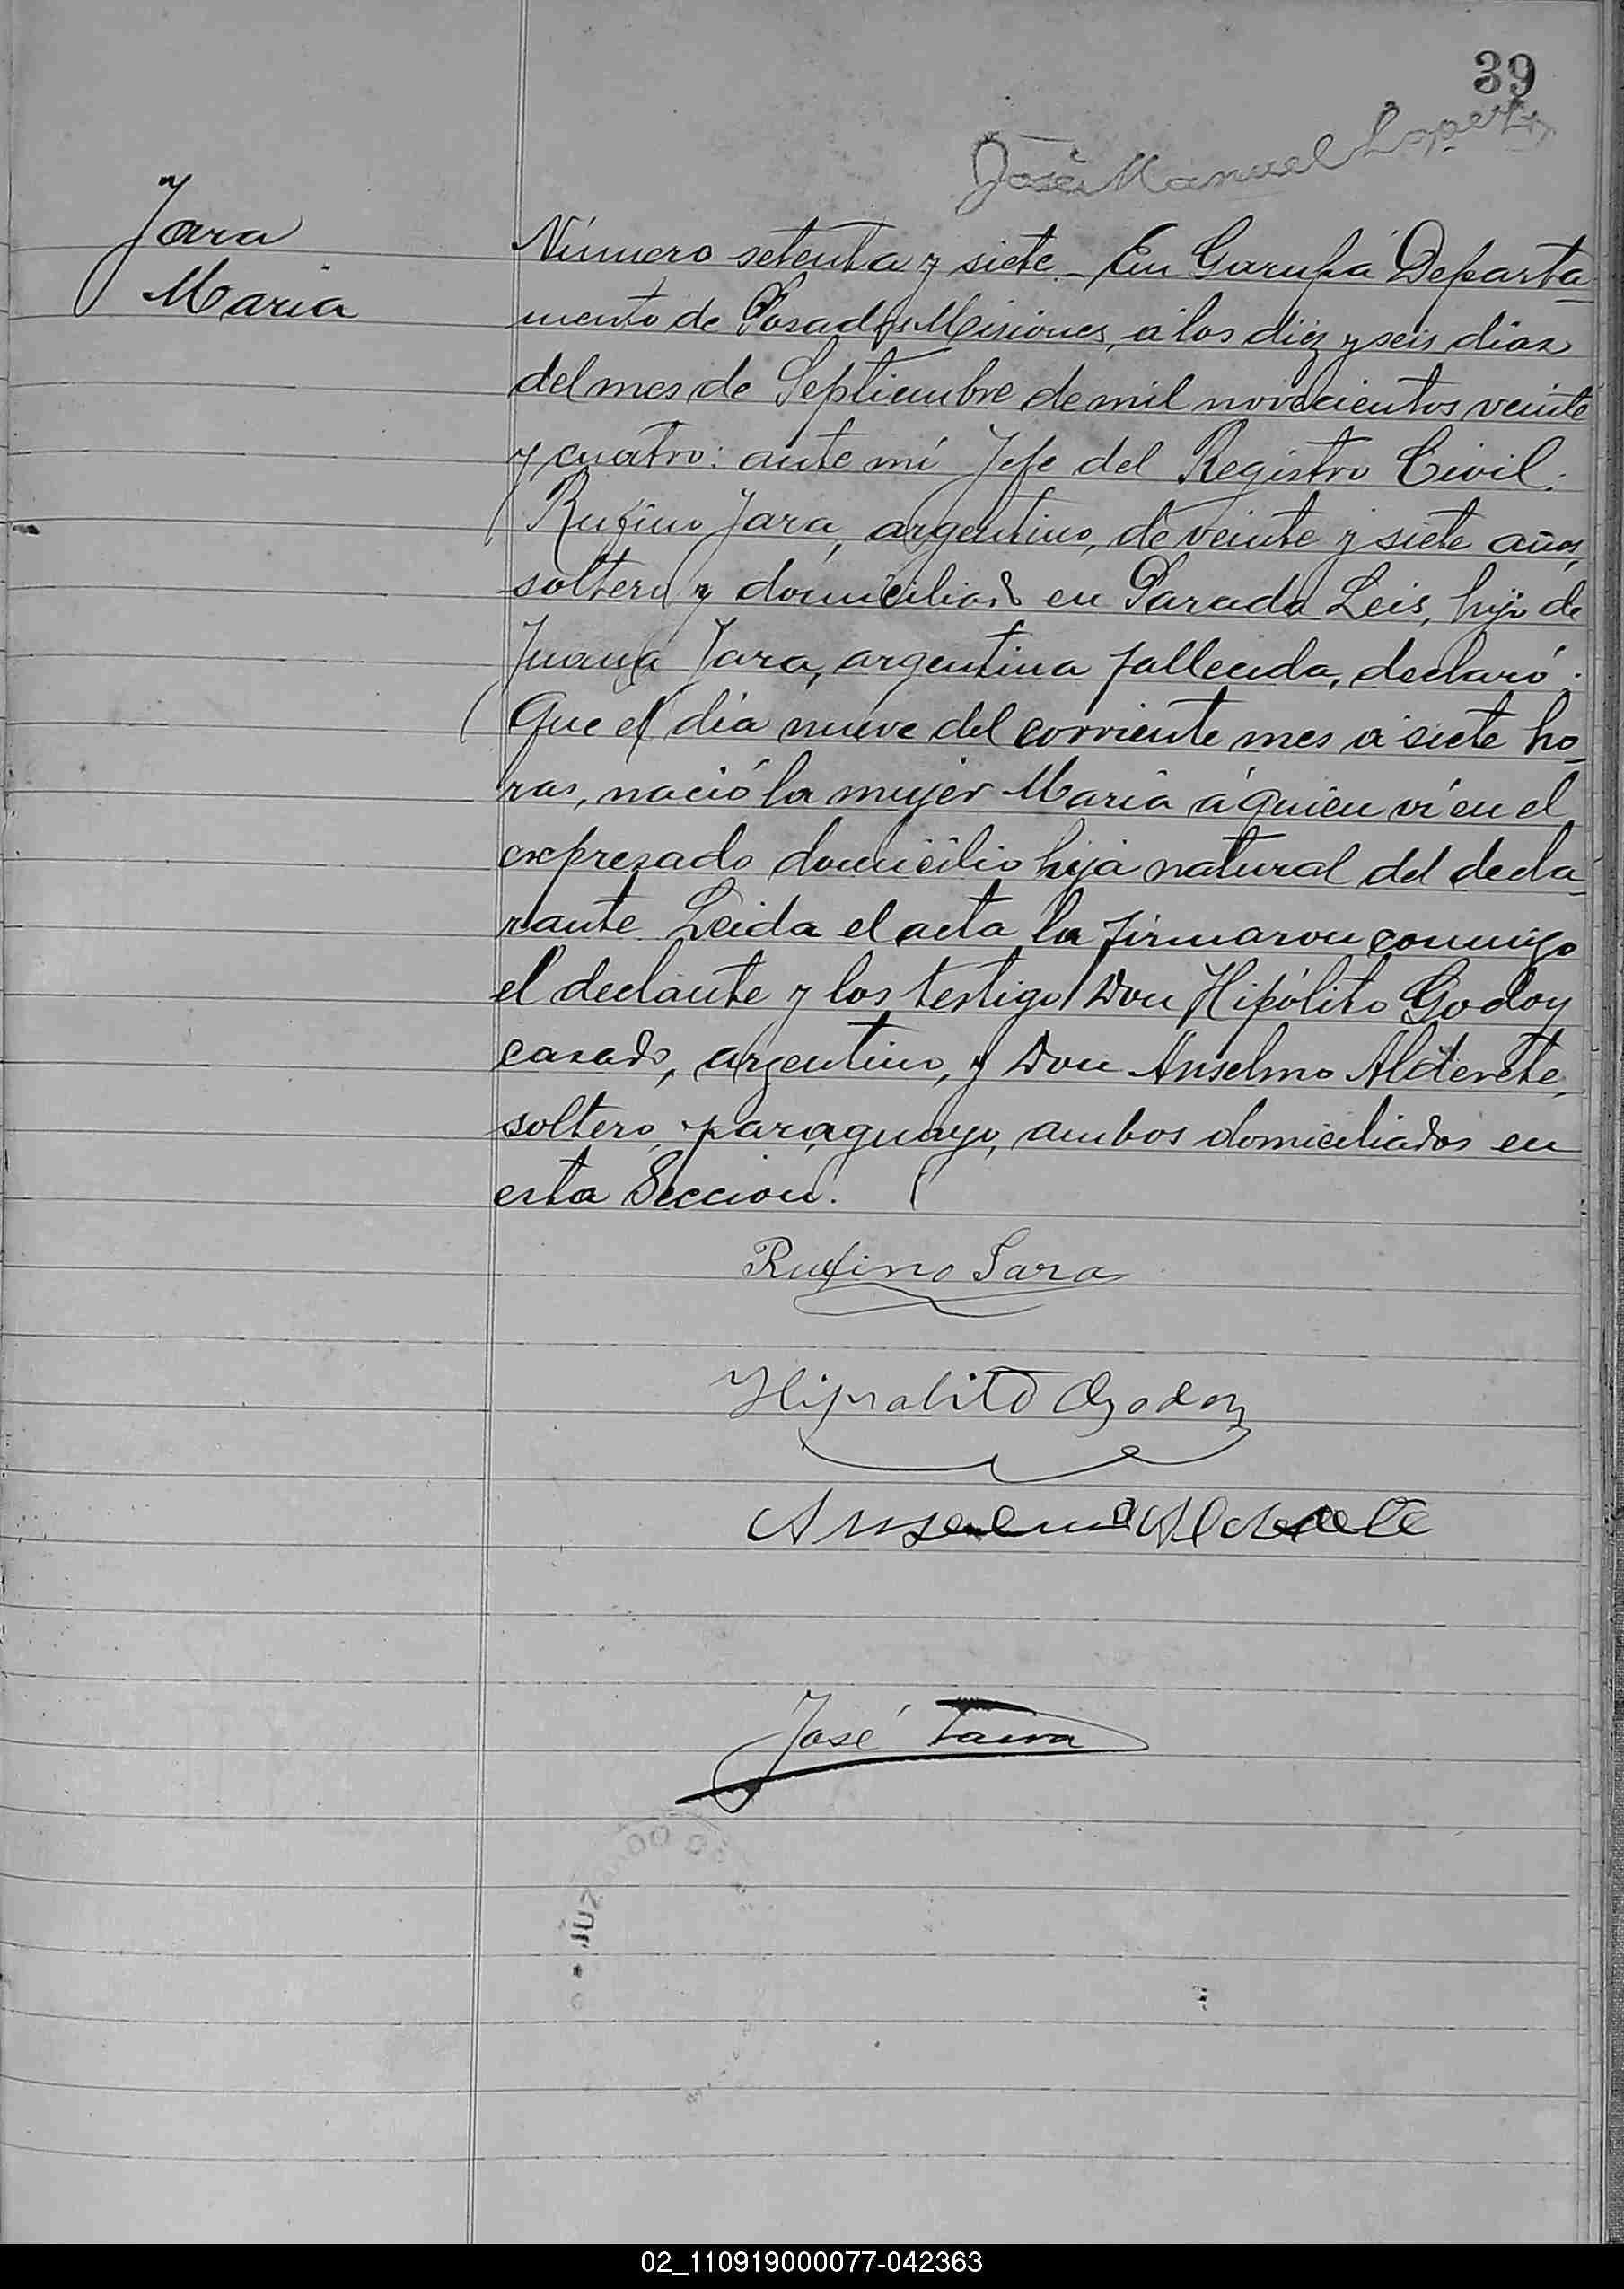 39
José Manuel Lopez
Jara
Maria
Número setenta y siete.- En Garupá Departa-
mento de Posadas Misiones, á los diéz y seis dias
del mes de Septiembre de mil novecientos veinte
y cuatro: ante mi Jefe del Registro Civil.
Rufino Jara, argentino, de veinte y siete años,
soltero y domiciliado en Parada Leis, hijo de
Juana Jara, argentina fallecida, declaró:
Que el día nueve del corriente mes á siete ho-
ras, nació la mujer Maria á quien ví en el
expresado domicilio hija natural del decla-
rante. Leida el acta la firmaron conmigo
el declante y los testigos Don Hipólito Godoy
casado, argentino, y Don Anselmo Alderete,
soltero, paraguayo, ambos domiciliados en
esta Seccion.
Rufino Jara
Hipolito Godoy
Anselmo Alderete
José
JUZ
02_110919000077-042363